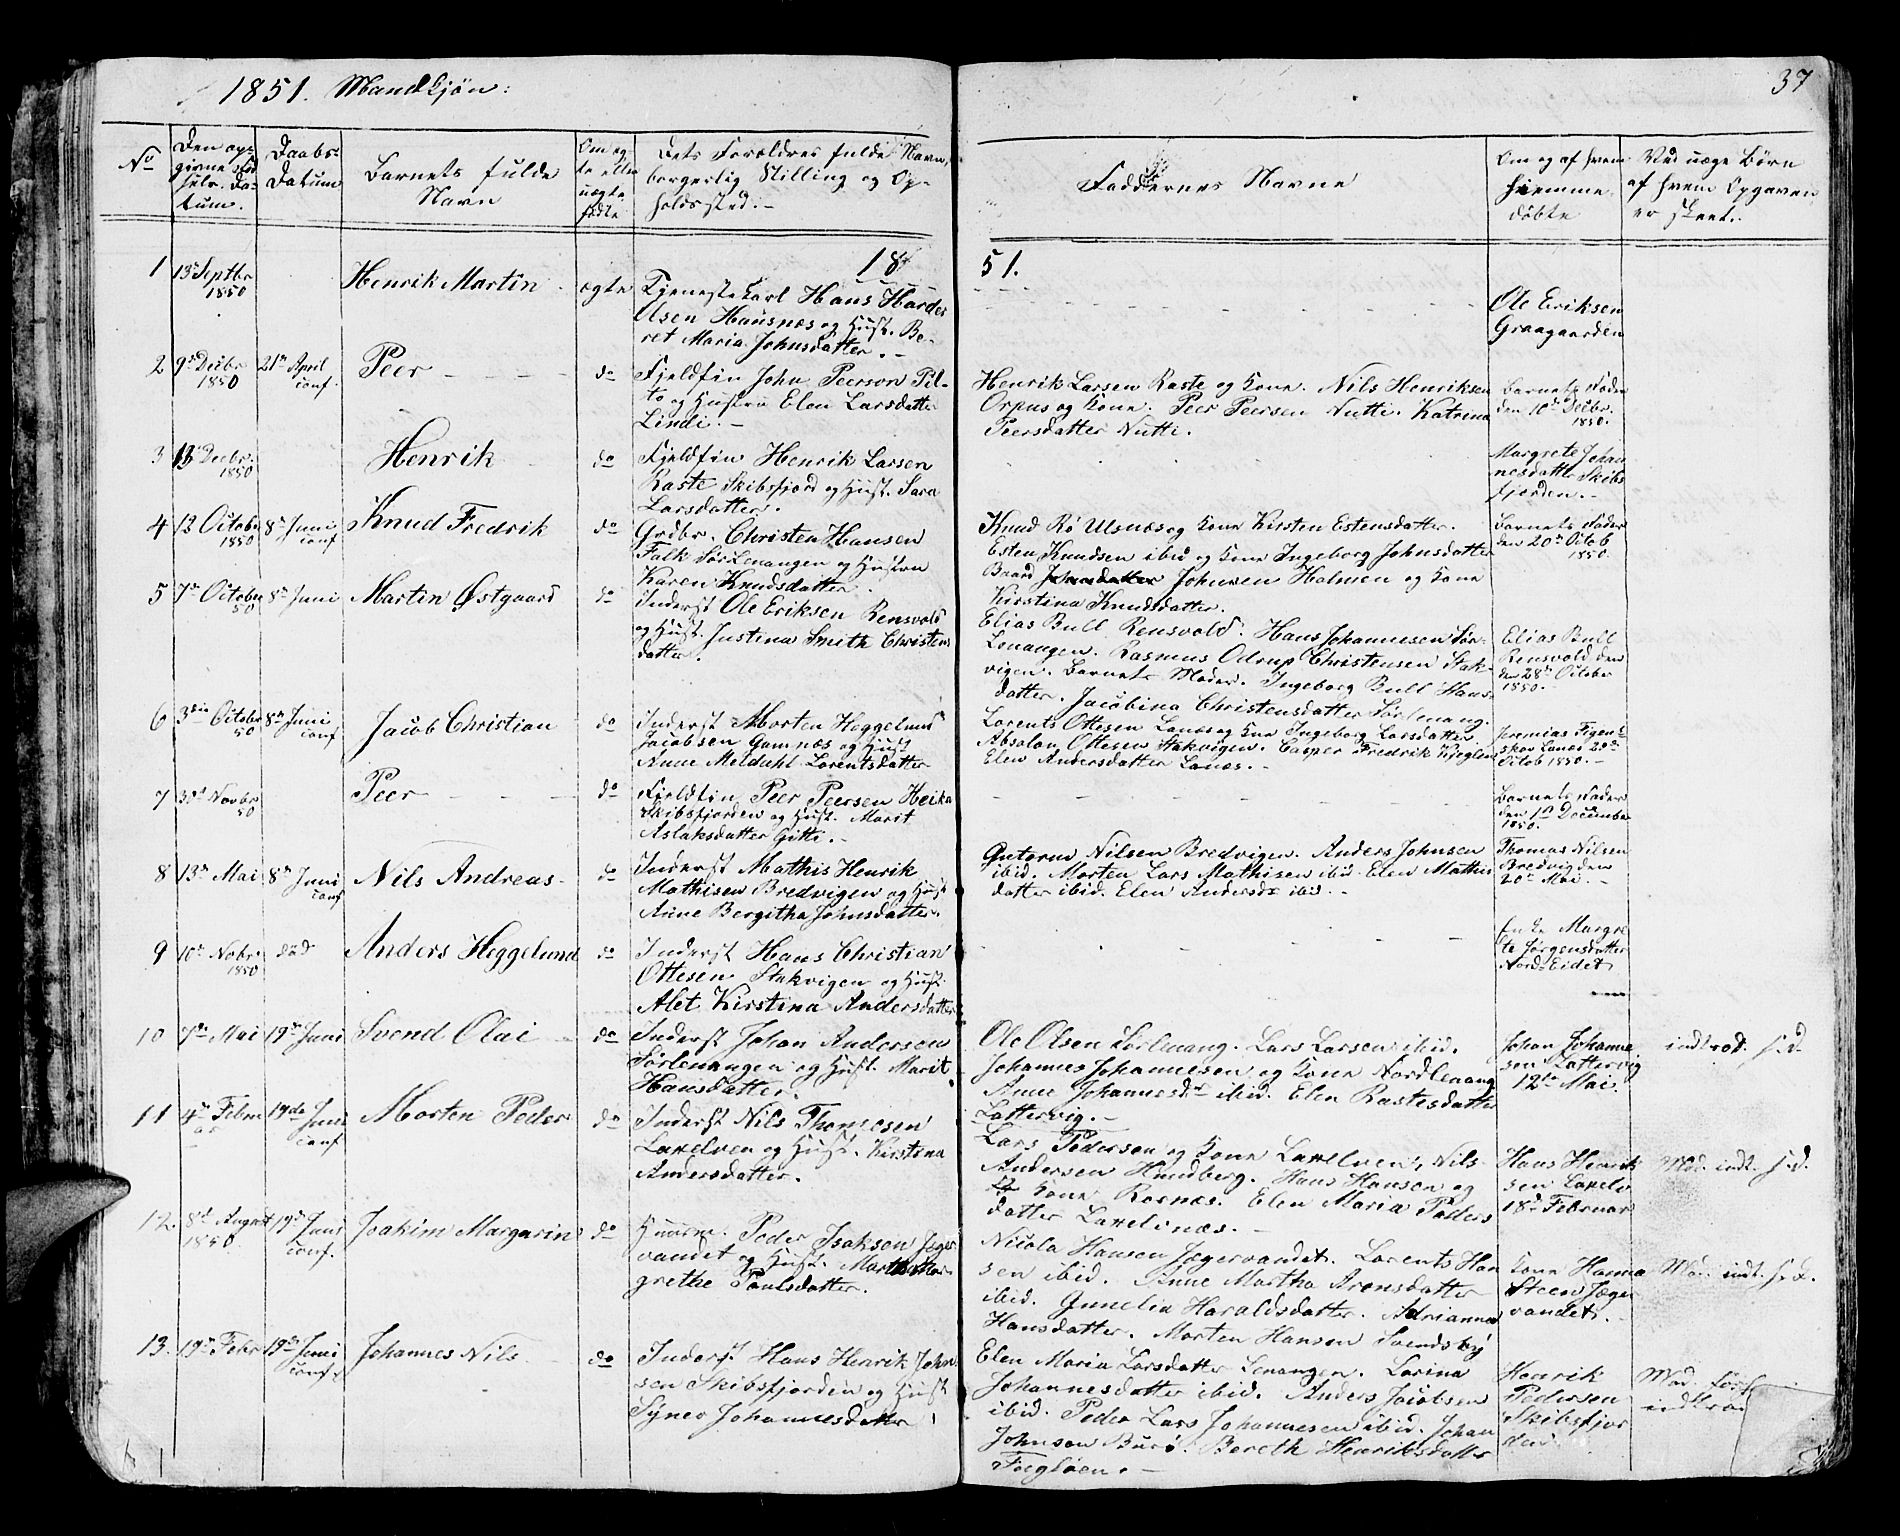 1851. Mandkjøn:
37
No
Den op-
givne Fød-
sels Da-
tum.
Daabs-
Datum
Barnets fulde
Navn
Om eg-
te eller
uægte
fødte
Dets Forældres fulde Navn,
borgerlig Stilling og Op-
holdssted.-
Faddernes Navne
Om og af hvem
hiemme-
døbte
Ved uægte Børn
af hvem Opgaven
er skeet.
18
51.
1
13 Septbr
1850
Henrik Martin
ægte
Tjenestekarl Hans Harder
Olsen Hansnæs og Hust. Be-
ret Maria Johnsdatter.-
Ole Eriksen
Graagaarden
2
9 Decbr
1850
21 April
conf.
Peer
do
Fjeldfin John Peerson Pil-
to og Hustru Elen Larsdatter
Lindi.-
Henrik Larsen Raste og Kone. Nils Henriksen
Orpus og Kone. Peer Peersen Nutti. Katrina
Peersdatter Nutti.
Barnets Fader
den 10de Decbr.
1850.
3
13 Decbr.
1850
Henrik
do
Fjeldfin Henrik Larsen
Raste Skibsfjord og Hust. Sara
Larsdatter.
Margrete Johan
nesdattr Skibs
fjorden.-
4
12 Octobr
1850
8 Juni
conf
Knud Fredrik
do
Grdbr. Christen Hansen
Falk Sørlenangen og Hustru
Karen Knudsdatter.
Knud Rø Ulsnæs og Kone Kirsten Estensdatter.
Esten Knudsen ibid og Kone Ingeborg Johnsdatter
Baard Johnsen Holmen og Kone
Kirstina Knudsdatter.
Barnets Fader
den 20 Octob
1850.
5
7 October
50
8 Juni
Martin Østgaard
do
Inderst Ole Eriksen Rensvold
og Hust. Justina Smith Christens
datter.
Elias Bull Rensvold. Hans Johannesen Sør-
Lenangen. Rasmus Odrup Christensen Stak-
vigen. Barnets Moder. Ingeborg Bull Hans-
datter. Jacobina Christensdatter Sørlenang.
Elias Bull
Rensvold den
den 28 October
1850.-
6
3die Octobr
50
8 Juni
conf
Jacob Christian
do
Inderst Morten Heggelund
Jacobsen Gamnæs og Hust
Anne Meldahl Lorentsdatter
Lorents Ottesen Lanes og Kone Ingeborg Larsdatter.
Absalon Ottesen Stakvigen. Casper Fredrik
Elen Andersdatter Lanes.-
Octob 1850.-
7
30 Novbr
50
Peer
do
Fjeldfin Peer Peersen Heika
Skibsfjorden og Hust. Marit
Aslaksdatter Gitti.-
Barnets Fader
den 1 December
1850.
8
13 Mai
8 Juni
conf
Nils Andreas
do
Inderst Mathis Henrik
Mathisen Bredvigen og Hust
Anne Bergitha Johnsdatter.
Gutorm Nilsen Bredvigen. Anders Johnsen
ibid. Morten Lars Mathisen ibid. Elen Mathis
datter ibid. Elen Andersdr ibid.-
Thomas Nilsen
Bredvig den
20 Mai.-
9
10 Nobr
1850
død
Anders Heggelund
do
Inderst Hans Christian
Ottesen Stakvigen og Hust.
Alet Kirstina Andersdatter
Enke Margre
te Jørgensdatter
Nord-Eidet
10
7de Mai
19 Juni
Svend Olai
do
Inderst Johan Andersen
Sørlenangen og Hust. Marit
Hansdatter.
Ole Olsen Sørlenang. Lars Larsen ibid.
Johannes Johannesen og Kone Nordlenang
Anne Johannesdr ibid. Elen Rastesdatter
Lattervig.-
Johan Johanne
sen Lattervig
12te Mai.
indtrod. s.d.
11
4 Febru
ar
19de Juni
conf
Morten Peder
do
Inderst Nils Thomesen
Laxelven og Hust. Kirstina
Andersdatter.
Lars Pedersen og Kone Laxelven, Nils
Andersen Hundberg. Hans Hansen og
Kone Rosnæs. Elen Maria Peders
datter Laxelvnæs.-
Hans Henrik
sen Laxelv
18 Februar
Mod. indt. s.d.
12.
8 August
1850.
19 Juni
conf.
Joakim Margarin
do
Huusm. Peder Isaksen Jæger
vandet og Hust. Martha Mar-
grethe Paulsdatter.
Nicola Hansen Jægervandet. Lorents Han
sen ibid. Anne Martha Aronsdatter
ibid. Gunelia Haraldsdatter. Adrianna
Hansdatter. Morten Hansen Svendsby
Kone Hanna
Steen Jæger
vandet.-
Mod. indt. s.d.
13.
19 Febr
19de Juni
conf.
Johannes Nils
do
Inderst Hans Henrik John
sen Skibsfjorden og Hust
Synev Johannesdatter
Elen Maria Larsdatter Lenangen. Larina
Johannesdatter ibid. Anders Jacobsen
ibid. Peder Lars Johannesen ibid. Johan
Johnsen Burø. Bereth Henriksdatter
Fugløen.-
Henrik
Pedersen
Skibsfjor
den.
Mod.